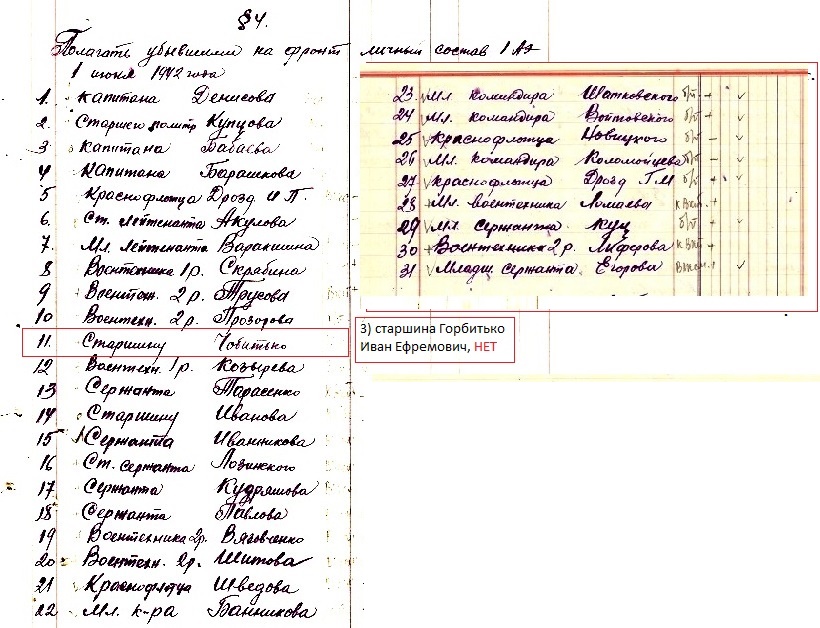 §4.
Полагать убывшими на фронт личный состав 1 АЭ
1 июня 1942 года
1. Капитана Денисова
2. Старшего политр Купцова
3 Капитана Бабаева
4 Капитана Барашкова
5 Краснофлотца Дрозд И П.
6. Ст. лейтенанта Акулова
7. Мл. лейтенанта Варакшина
8 Воентехника 1 р. Скрябина
9 Воентехн. 2 р. Трусова
10 Воентехн. 2 р. Прозорова
11. Старшину Чобитько
12 Воентехн. 1 р. Козырева
13 Сержанта Тарасенко
14 Старшину Иванова
15 Сержанта Иванникова
16 Ст. сержанта Лозинского
17 Сержанта Кудряшова
18 Сержанта Павлова
19 Воентехника 2 р. Вяговченко
20 Воентехн. 2 р. Шитова
21 Краснофлотца Шведова
22 Мл. к-ра Банникова
23 Мл. командира Шатковского б/п + ✓
24 Мл. командира Войтовского б/п +
25 Краснофлотца Новицкого б/п – ✓
26 Мл. командира Коломойцева б/п – ✓
27 Краснофлотца Дрозд Г М б/п + ✓
28 Мл. воентехника Ломаева +
29 Мл. сержанта Куц б/п + ✓
30 Воентехника 2 р. Алферова +
31 Младш сержанта Егорова ✓
3) старшина Горбитько
Иван Ефремович, НЕТ